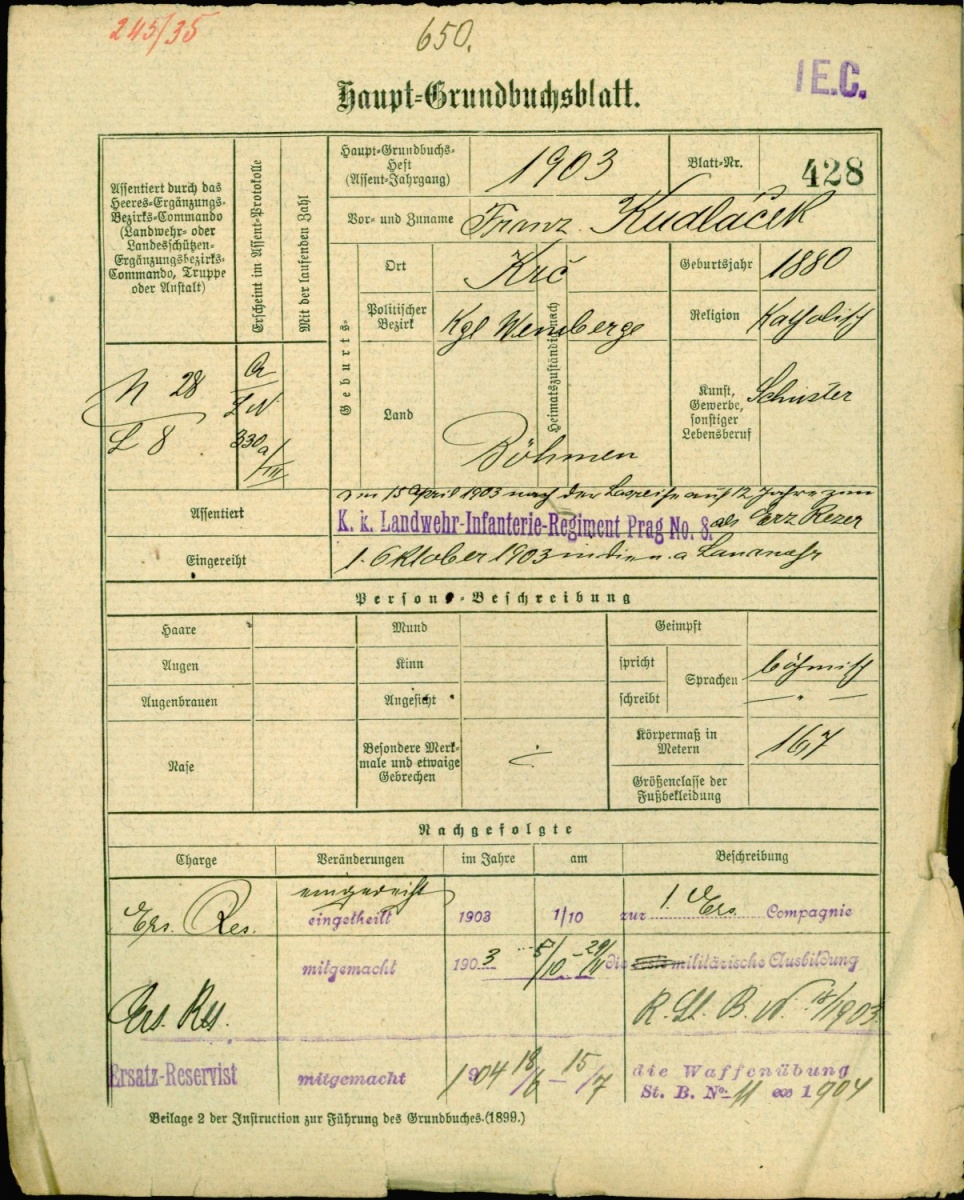 245/35
650.
I E.C.
Haupt-Grundbuchsblatt.
Assentiert durch das
Heeres-Ergänzungs-
Bezirks-Commando
(Landwehr- oder
Landesschützen-
Ergänzungsbezirks-
Commando, Truppe
oder Anstalt)
Erscheint im Assent-Protokolle
Mit der laufenden Zahl
N 28
L 8
330a/III
Haupt-Grundbuchs-
Heft
(Assent-Jahrgang)
1903
Blatt-Nr.
428
Vor- und Zuname
Franz Kudláček
Geburts-
Ort
Krč
Politischer
Bezirk
Kgl Weinberge
Land
Böhmen
Heimatszuständig nach
Geburtsjahr
1880
Religion
Katholisch
Kunst,
Gewerbe,
sonstiger
Lebensberuf
Schuster
Assentiert
am 15 April 1903 nach der Losreihe auf 12 Jahre zum
K. k. Landwehr-Infanterie-Regiment Prag No. 8. als Erz Rezer
Eingereiht
1. Oktober 1903 in die
Persons-Beschreibung
Haare
Mund
Geimpft
Augen
Kinn
spricht
Sprachen
böhmisch
Augenbrauen
Angesicht
schreibt
"
Nase
Besondere Merk-
male und etwaige
Gebrechen
Körpermaß in
Metern
167
Größenclasse der
Fußbekleidung
Nachgefolgte
Charge
Veränderungen
im Jahre
am
Beschreibung
eingereiht
Ers. Res.
eingetheilt
1903
1/10
zur 1. Ers. Compagnie
mitgemacht
1903
5/10 – 29/11
die militärische Ausbildung
Ers. Res.
R. St. B. N. 18/1903
Ersatz-Reservist
mitgemacht
1904
18/6 – 15/7
die Waffenübung
St. B. No. 11 ex 1904
Beilage 2 der Instruction zur Führung des Grundbuches.(1899.)